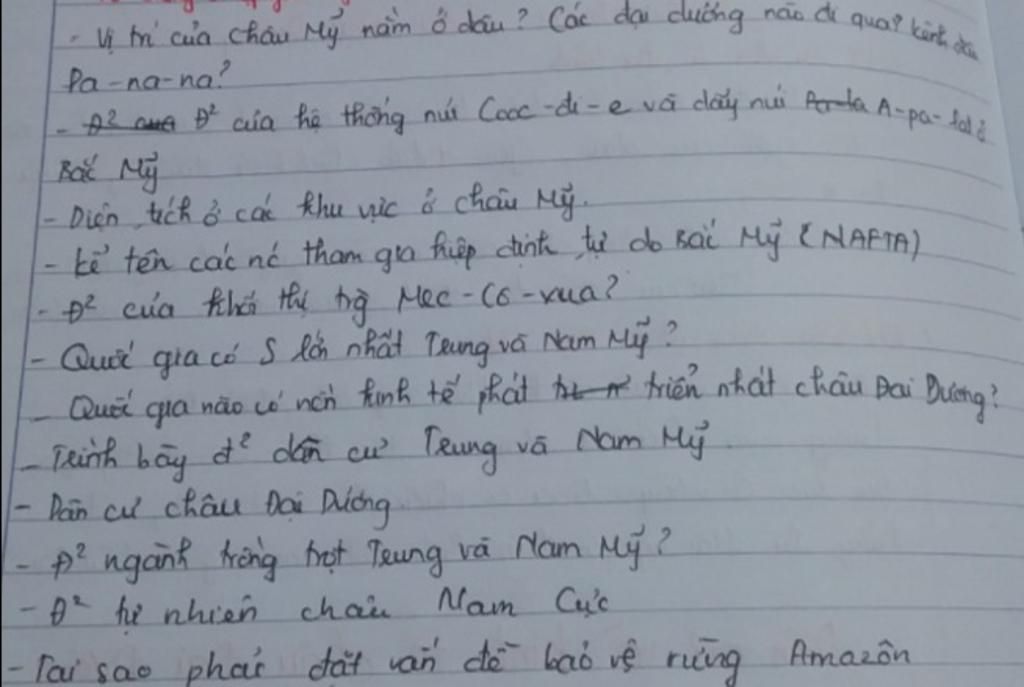 - Vị trí của châu Mỹ nằm ở đâu? Các đại dương nào đi qua? kênh đào
Pa-na-na?
- Đ² của hệ thống núi Cooc-di-e và dãy núi A-pa-lat ở
Bắc Mỹ
- Diện tích ở các khu vực ở châu Mỹ.
- kể tên các nc tham gia hiệp định tự do Bắc Mỹ (NAFTA)
- Đ² của khối thị trg Mec-Cô-xua?
- Quốc gia có S lớn nhất Trung và Nam Mỹ?
- Quốc gia nào có nền kinh tế phát triển nhất châu Đại Dương?
- Trình bày đ² dân cư Trung và Nam Mỹ
- Dân cư châu Đại Dương
- Đ² ngành trồng trọt Trung và Nam Mỹ?
- Đ² tự nhiên châu Nam Cực
- Tại sao phải đặt vấn đề bảo vệ rừng Amazôn